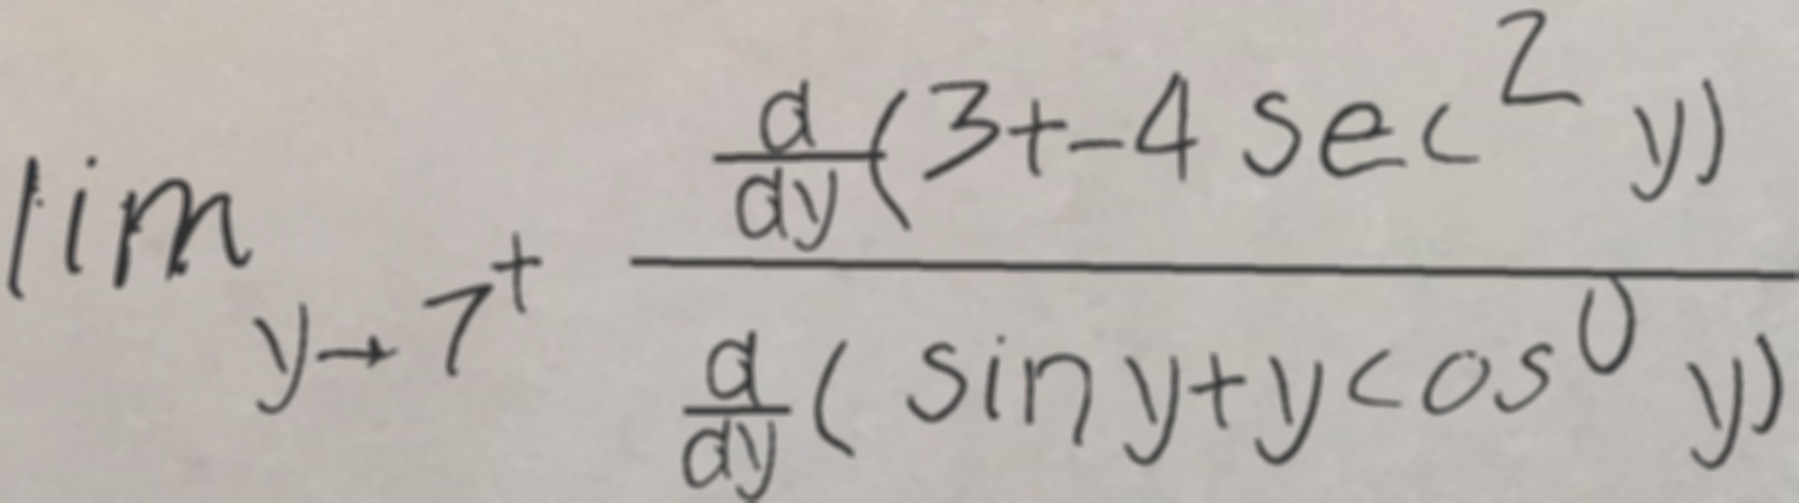 \lim_{y \to 7^+} \frac{\frac{d}{dy}(3+-4\sec^2 y)}{\frac{d}{dy}(\sin y+y\cos^0 y)}